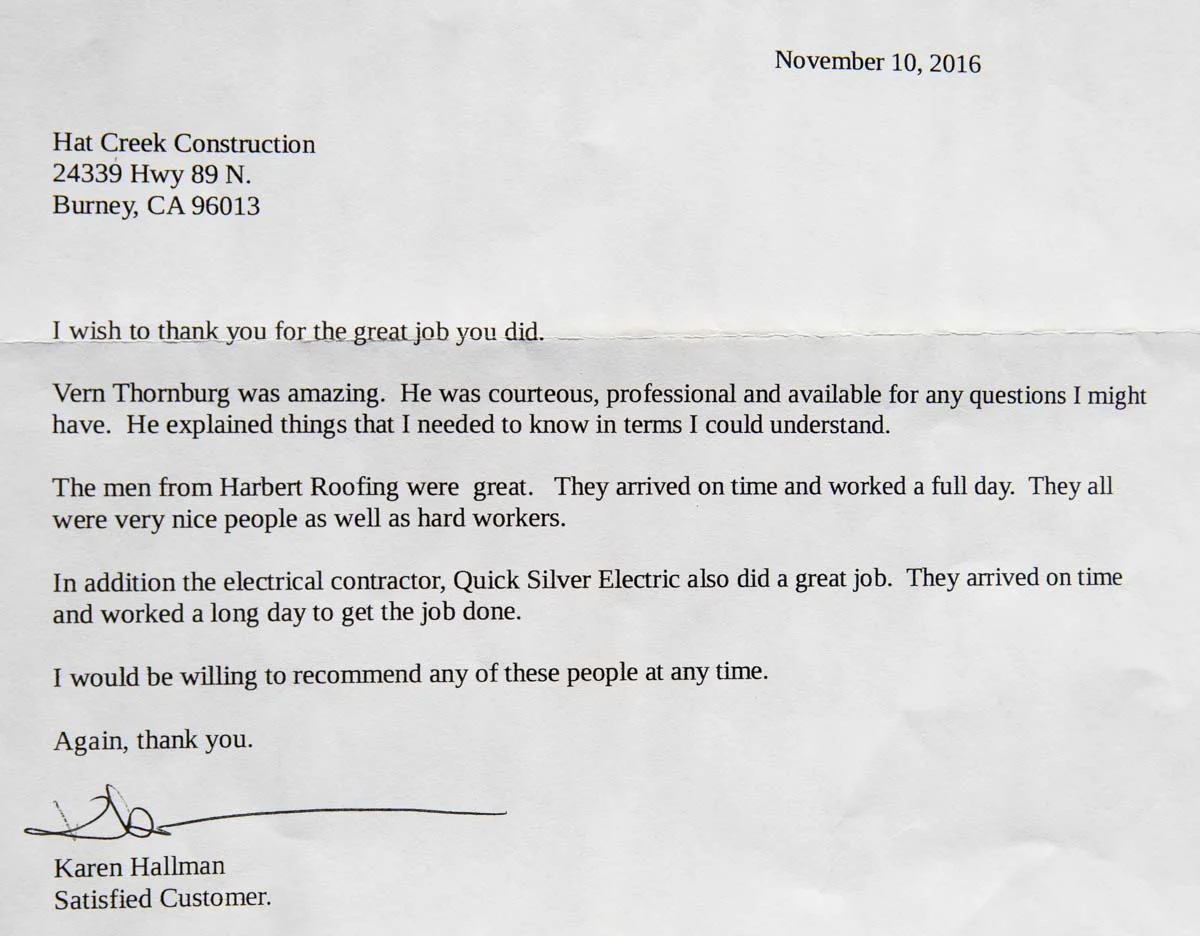 November 10, 2016
Hat Creek Construction
24339 Hwy 89 N.
Burney, CA 96013
I wish to thank you for the great job you did.
Vern Thornburg was amazing.  He was courteous, professional and available for any questions I might
have.  He explained things that I needed to know in terms I could understand.
The men from Harbert Roofing were  great.   They arrived on time and worked a full day.  They all
were very nice people as well as hard workers.
In addition the electrical contractor, Quick Silver Electric also did a great job.  They arrived on time
and worked a long day to get the job done.
I would be willing to recommend any of these people at any time.
Again, thank you.
Karen Hallman
Satisfied Customer.